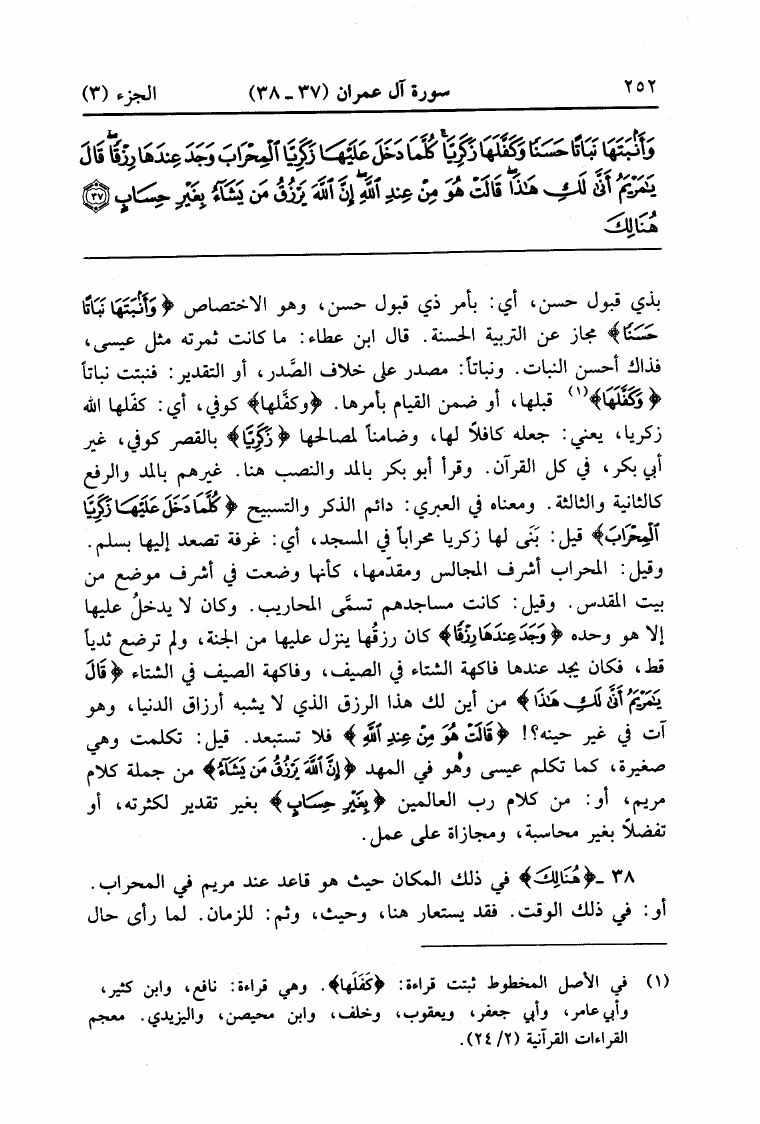 ٢٥٢ سورة آل عمران (٣٧ ـ ٣٨) الجزء (٣)
وَأَنۢبَتَهَا نَبَاتًا حَسَنًا وَكَفَّلَهَا زَكَرِيَّا ۖ كُلَّمَا دَخَلَ عَلَيْهَا زَكَرِيَّا ٱلْمِحْرَابَ وَجَدَ عِندَهَا رِزْقًا ۖ قَالَ
يَٰمَرْيَمُ أَنَّىٰ لَكِ هَٰذَا ۖ قَالَتْ هُوَ مِنْ عِندِ ٱللَّهِ ۖ إِنَّ ٱللَّهَ يَرْزُقُ مَن يَشَآءُ بِغَيْرِ حِسَابٍ ﴿٣٧﴾
هُنَالِكَ
بذي قبول حسن، أي: بأمر ذي قبول حسن، وهو الاختصاص ﴿وَأَنۢبَتَهَا نَبَاتًا
حَسَنًا﴾ مجاز عن التربية الحسنة. قال ابن عطاء: ما كانت ثمرته مثل عيسى،
فذاك أحسن النبات. ونباتاً: مصدر على خلاف الصَّدر، أو التقدير: فنبتت نباتاً
﴿وَكَفَّلَهَا﴾(١) قبلها، أو ضمن القيام بأمرها. ﴿وكفَّلها﴾ كوفي، أي: كفّلها الله
زكريا، يعني: جعله كافلاً لها، وضامناً لمصالحها ﴿زَكَرِيَّا﴾ بالقصر كوفي، غير
أبي بكر، في كل القرآن. وقرأ أبو بكر بالمد والنصب هنا. غيرهم بالمد والرفع
كالثانية والثالثة. ومعناه في العبري: دائم الذكر والتسبيح ﴿كُلَّمَا دَخَلَ عَلَيْهَا زَكَرِيَّا
ٱلْمِحْرَابَ﴾ قيل: بَنَى لها زكريا محراباً في المسجد، أي: غرفة تصعد إليها بسلم.
وقيل: المحراب أشرف المجالس ومقدّمها، كأنها وضعت في أشرف موضع من
بيت المقدس. وقيل: كانت مساجدهم تسمَّى المحاريب. وكان لا يدخلُ عليها
إلا هو وحده ﴿وَجَدَ عِندَهَا رِزْقًا﴾ كان رزقُها ينزل عليها من الجنة، ولم ترضع ثدياً
قط، فكان يجد عندها فاكهة الشتاء في الصيف، وفاكهة الصيف في الشتاء ﴿قَالَ
يَٰمَرْيَمُ أَنَّىٰ لَكِ هَٰذَا﴾ من أين لك هذا الرزق الذي لا يشبه أرزاق الدنيا، وهو
آت في غير حينه؟! ﴿قَالَتْ هُوَ مِنْ عِندِ ٱللَّهِ﴾ فلا تستبعد. قيل: تكلمت وهي
صغيرة، كما تكلم عيسى وهُو في المهد ﴿إِنَّ ٱللَّهَ يَرْزُقُ مَن يَشَآءُ﴾ من جملة كلام
مريم، أو: من كلام رب العالمين ﴿بِغَيْرِ حِسَابٍ﴾ بغير تقدير لكثرته، أو
تفضلاً بغير محاسبة، ومجازاة على عمل.
٣٨ ـ ﴿هُنَالِكَ﴾ في ذلك المكان حيث هو قاعد عند مريم في المحراب.
أو: في ذلك الوقت. فقد يستعار هنا، وحيث، وثم: للزمان. لما رأى حال
(١) في الأصل المخطوط ثبتت قراءة: ﴿كَفَلَها﴾. وهي قراءة: نافع، وابن كثير،
وأبي عامر، وأبي جعفر، ويعقوب، وخلف، وابن محيصن، واليزيدي. معجم
القراءات القرآنية (٢٤/٢).